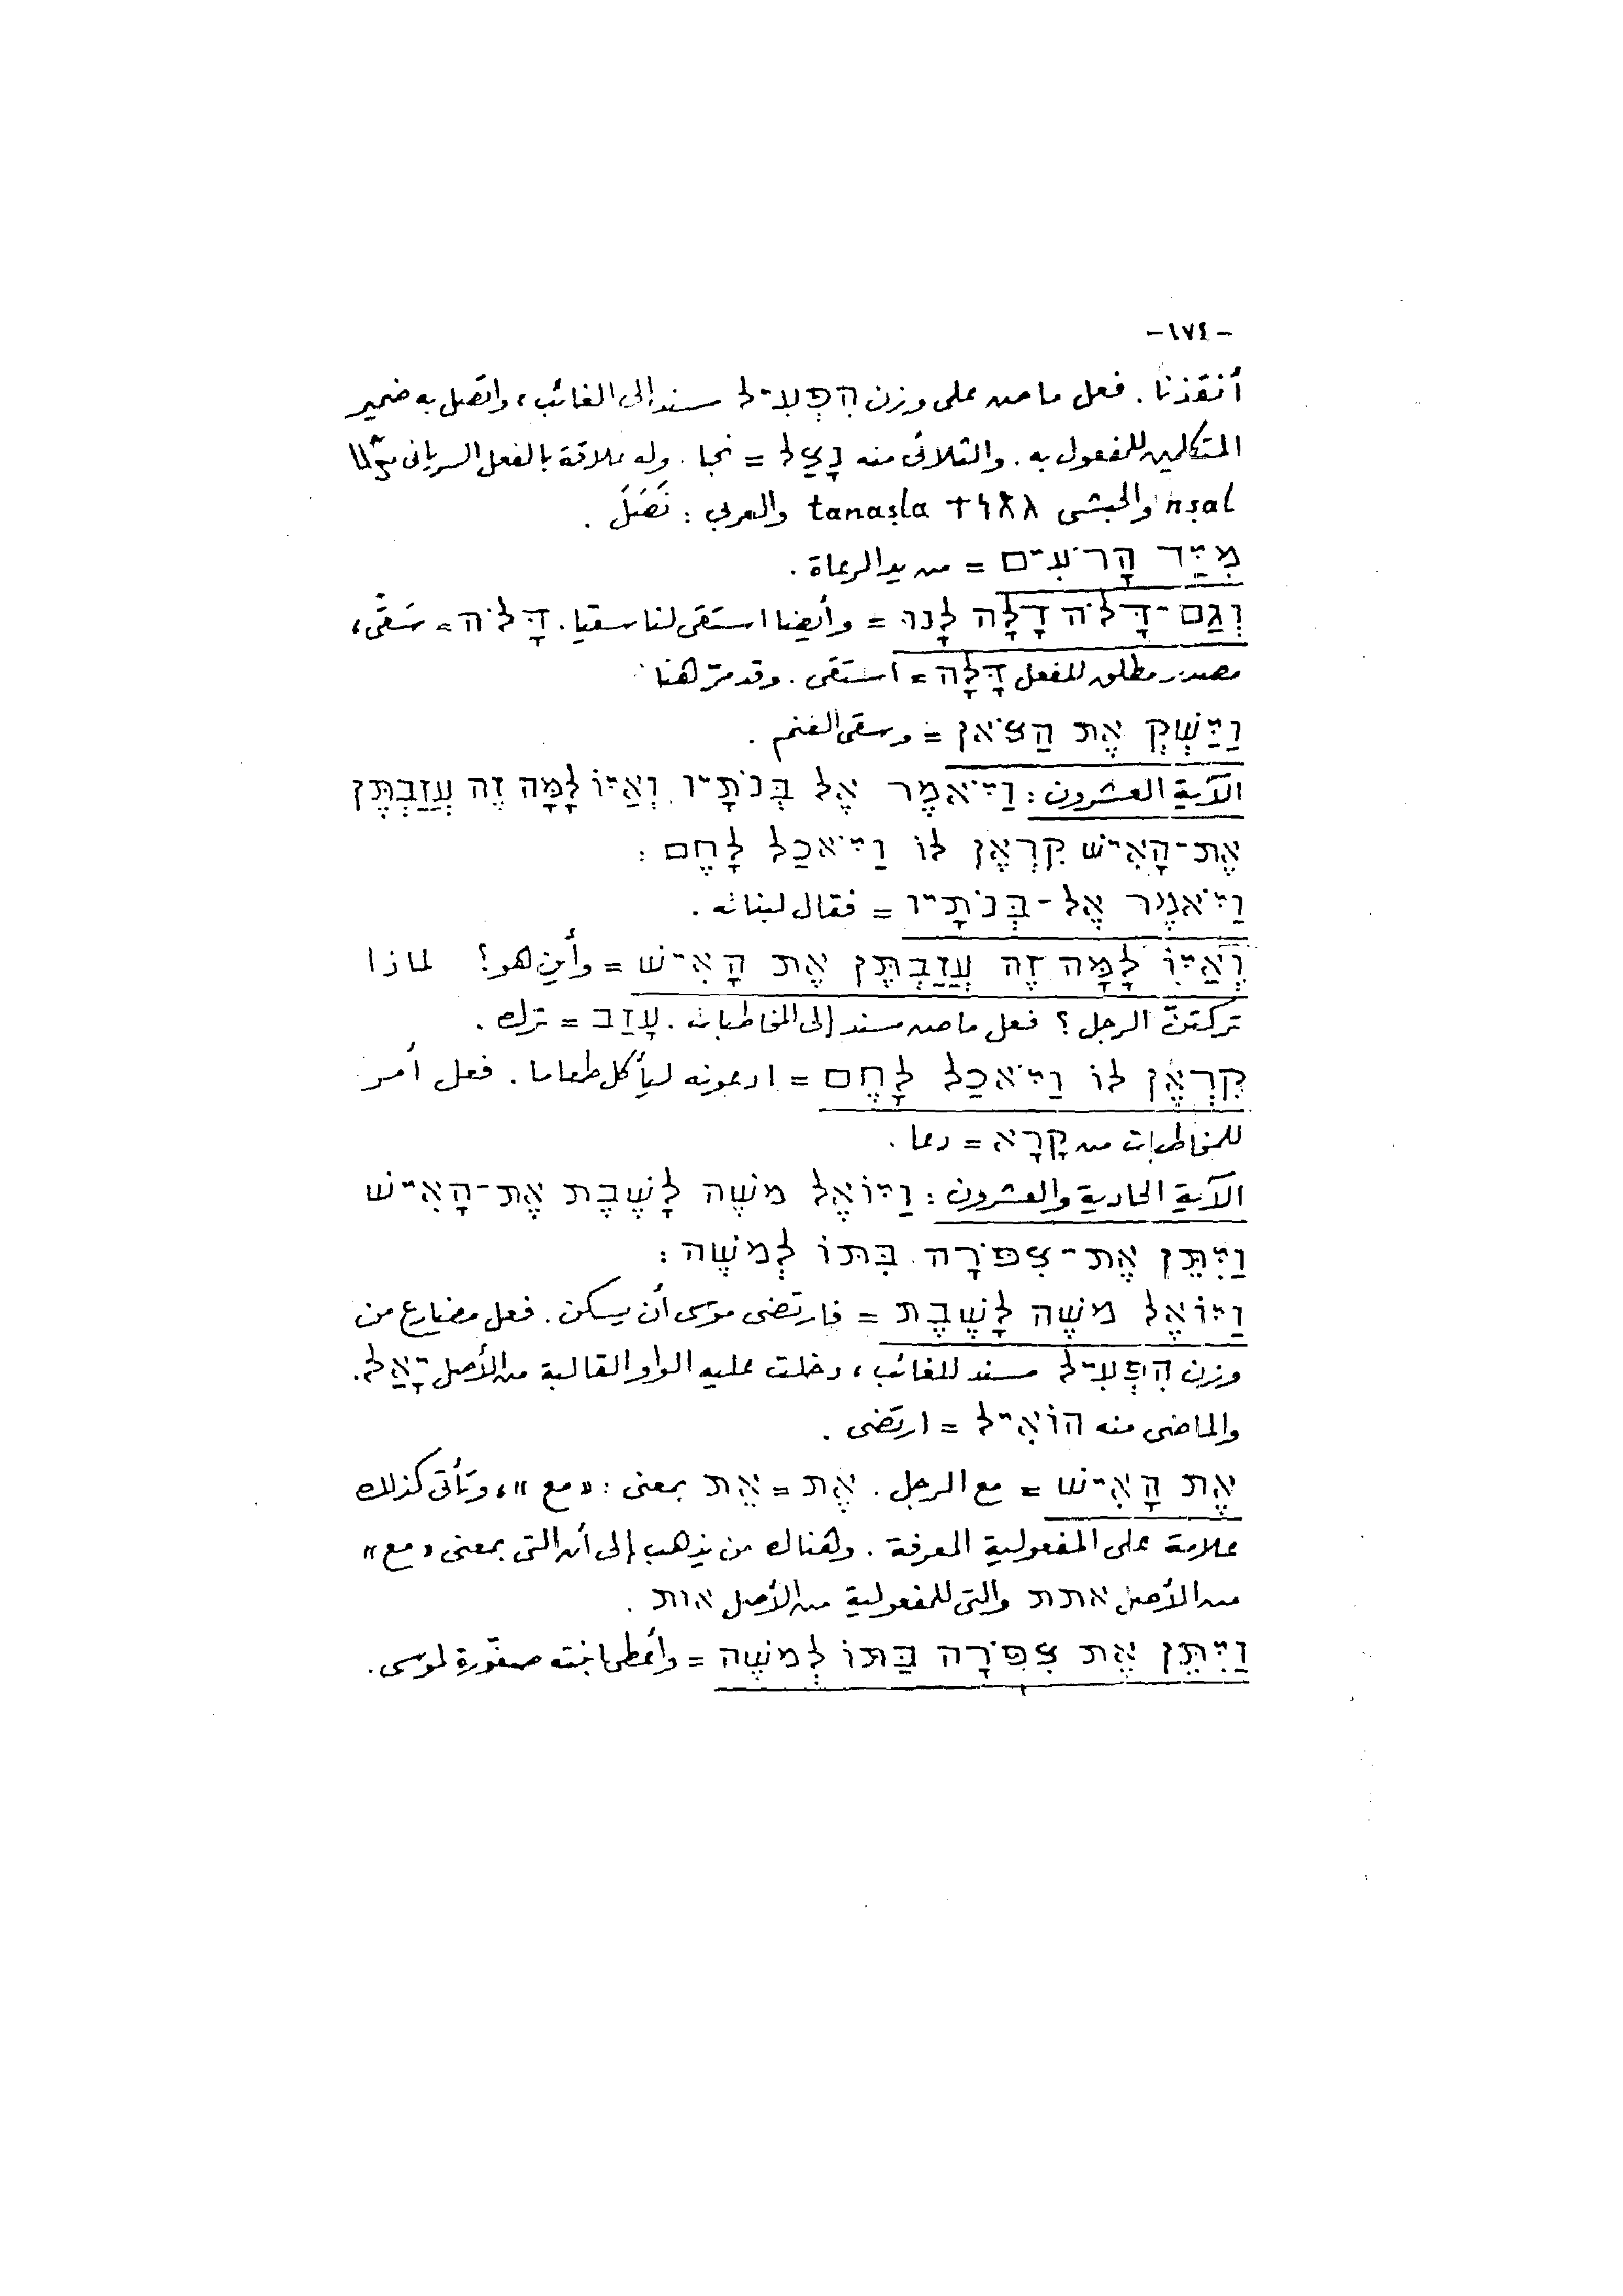 -١٧٤-
أنقذنا. فعل ماض على وزن הִפְעִיל مسند إلى الغائب، واتصل به ضمير
المتكلمين للمفعول به. والثلاثى منه נָצַל = نجا. وله علاقة بالفعل السريانى
nṣal والحبشى tanaṣla والعربي: نَصَلَ.
מִיַּד הָרֹעִים = من يد الرعاة.
וְגַם-דָּלֹה דָלָה לָנוּ = وأيضا استقى لنا سقيا. דָּלֹה = سَقْى،
مصدر مطلق للفعل דָּלָה = استقى. وقد مرّ هنا
וַיַּשְׁקְ אֶת הַצֹּאן = وسقى الغنم.
الآية العشرون: וַיֹּאמֶר אֶל בְּנֹתָיו וְאַיּוֹ לָמָּה זֶה עֲזַבְתֶּן
אֶת-הָאִישׁ קִרְאֶן לוֹ וַיֹּאכַל לָחֶם:
וַיֹּאמֶר אֶל-בְּנֹתָיו = فقال لبناته.
וְאַיּוֹ לָמָּה זֶה עֲזַבְתֶּן אֶת הָאִישׁ = وأين هو؟ لماذا
تركتنّ الرجل؟ فعل ماض مسند إلى المخاطبات. עָזַב = ترك.
קִרְאֶן לוֹ וַיֹּאכַל לָחֶם = ادعونه ليأكل طعاما. فعل أمر
للمخاطبات من קָרָא = دعا.
الآية الحادية والعشرون: וַיּוֹאֶל מֹשֶׁה לָשֶׁבֶת אֶת-הָאִישׁ
וַיִּתֵּן אֶת-צִפֹּרָה בִתּוֹ לְמֹשֶׁה:
וַיּוֹאֶל מֹשֶׁה לָשֶׁבֶת = فارتضى موسى أن يسكن. فعل مضارع من
وزن הִפְעִיל مسند للغائب، دخلت عليه الواو القالبة من الأصل יָאַל.
والماضى منه הוֹאִיל = ارتضى.
אֶת הָאִישׁ = مع الرجل. אֶת = אֵת بمعنى: «مع»، وتأتى كذلك
علامة على المفعولية المعرفة. وهناك من يذهب إلى أن التى بمعنى «مع»
من الأصل אתת والتى للمفعولية من الأصل אות.
וַיִּתֵּן אֶת צִפֹּרָה בִּתּוֹ לְמֹשֶׁה = وأعطى ابنته صفّورة لموسى.